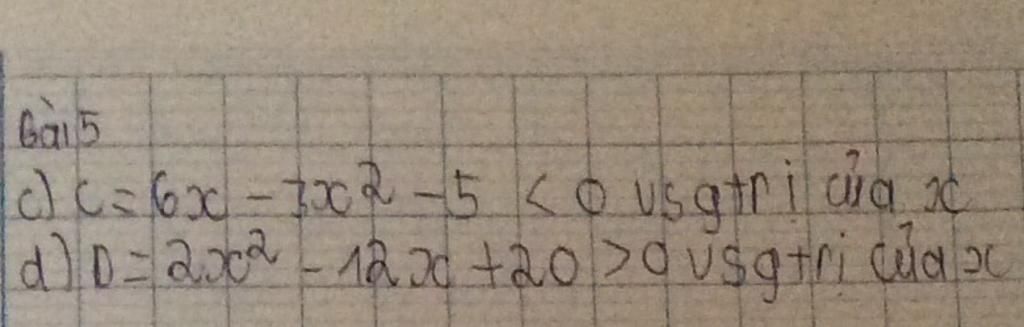 Bài 5
c) C = 6x - 3x² - 5 < 0 vs gtri của x
d) D = 2x² - 12x + 20 > 0 vs gtri của x